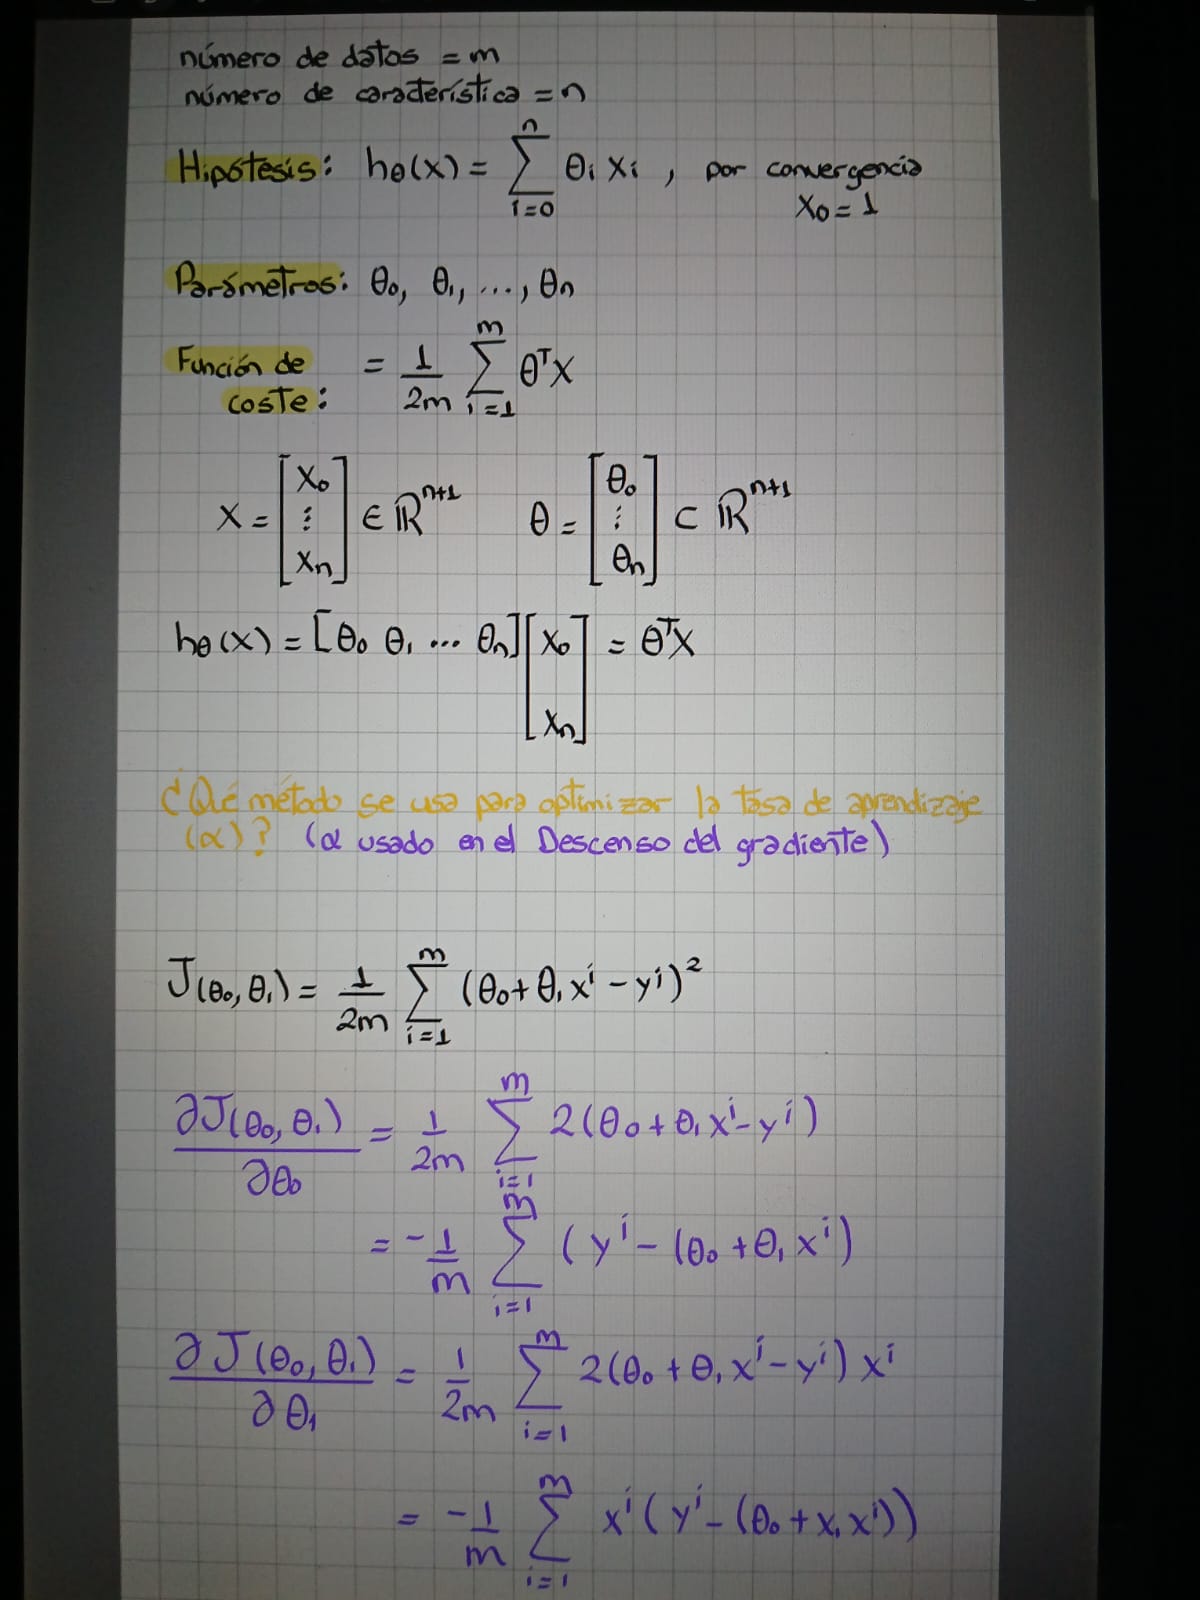 número de datos = m
número de característica = n
Hipótesis: hθ(x) = ∑_{i=0}^{n} θi xi , por convergencia
x0 = 1
Parámetros: θ0, θ1, ..., θn
Función de coste: = 1/2m ∑_{i=1}^{m} θ^T x
x = [x0 ⋮ xn] ∈ ℝ^{n+1} θ = [θ0 ⋮ θn] ⊂ ℝ^{n+1}
hθ(x) = [θ0 θ1 ... θn][x0 xn] = θ^T x
¿Qué método se usa para optimizar la tasa de aprendizaje
(α)? (α usado en el Descenso del gradiente)
J(θ0, θ1) = 1/2m ∑_{i=1}^{m} (θ0 + θ1 x^i - y^i)^2
∂J(θ0, θ1)/∂θ0 = 1/2m ∑_{i=1}^{m} 2(θ0 + θ1 x^i - y^i)
= -1/m ∑_{i=1}^{m} (y^i - (θ0 + θ1 x^i)
∂J(θ0, θ1)/∂θ1 = 1/2m ∑_{i=1}^{m} 2(θ0 + θ1 x^i - y^i) x^i
= -1/m ∑_{i=1}^{m} x^i (y^i - (θ0 + x1 x^i))